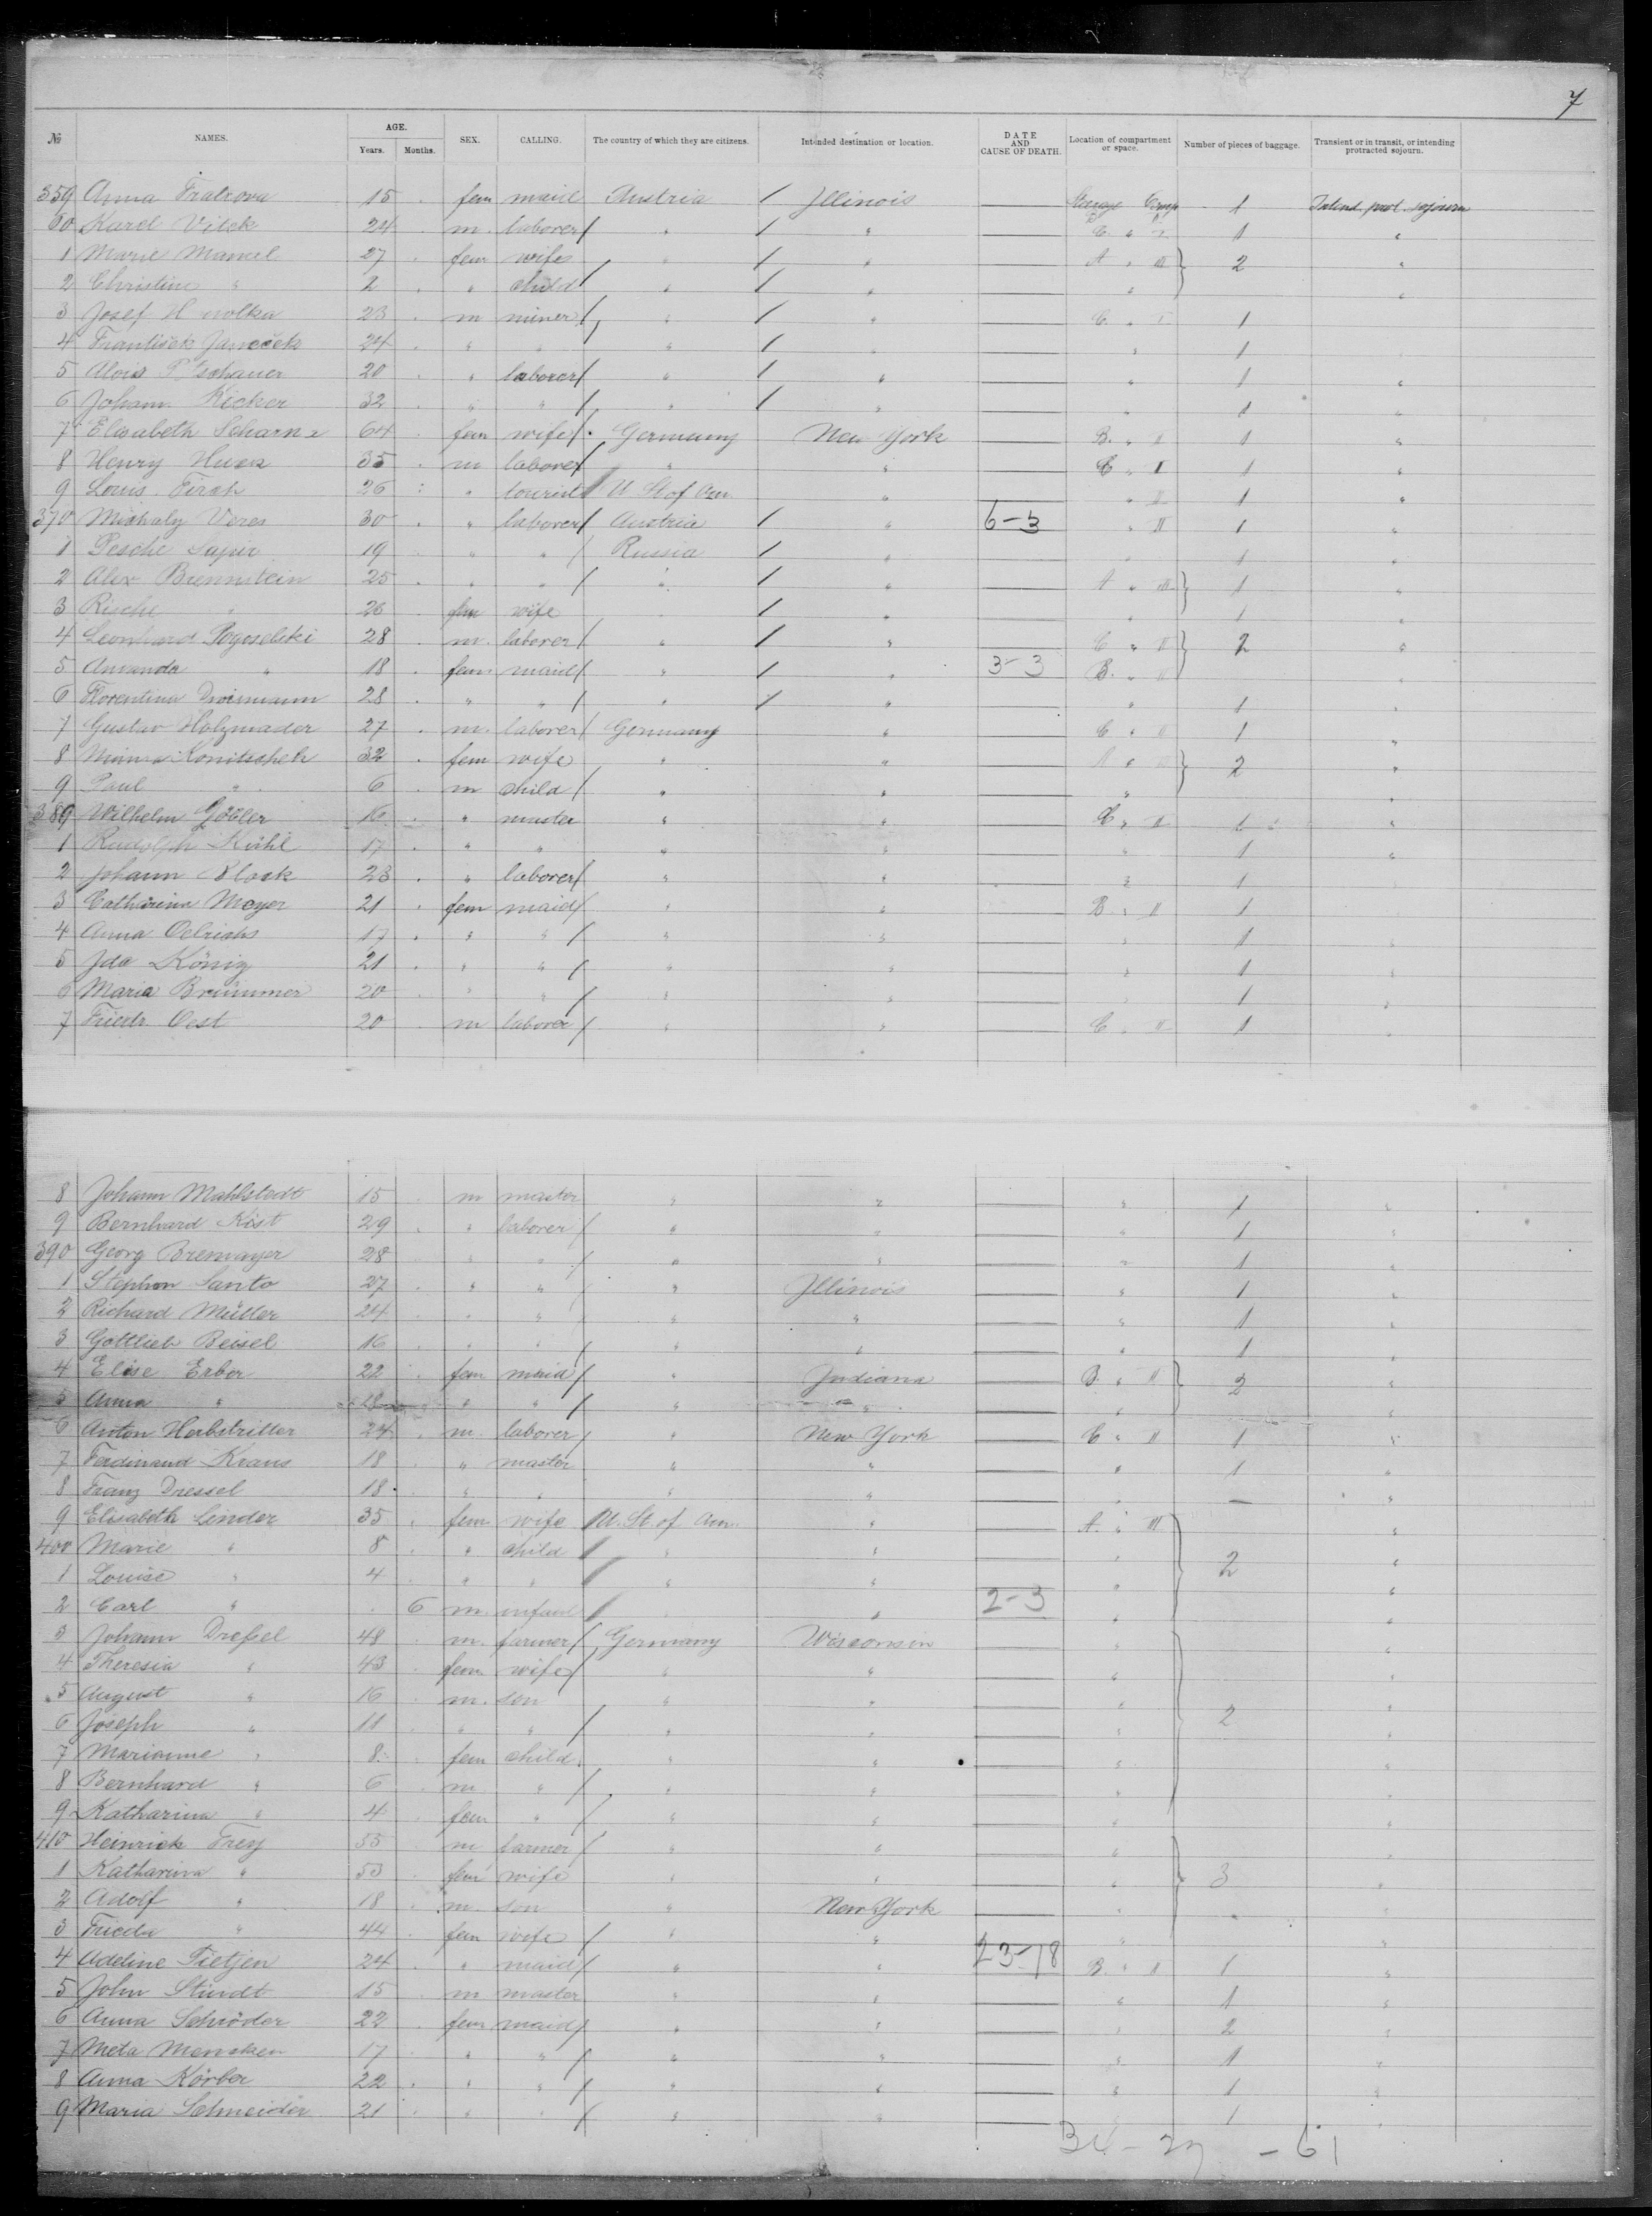 7
№ NAMES. AGE. Years. Months. SEX. CALLING. The country of which they are citizens. Intended destination or location. DATE AND CAUSE OF DEATH. Location of compartment or space. Number of pieces of baggage. Transient or in transit, or intending protracted sojourn.
359 Anna 15 fem maid Austria / Illinois Steerage Comp 1 Intend. prot. sojourn
60 Karel Vitek 24 m. laborer / " / " C. " I 1 "
1 Marie Mamel 27 fem wife " / " A " III 2 "
2 Christine " 2 " child / " / " " "
3 Josef 23 m miner / " / " C. " I 1
4 Frantisek Janecek 24 " " " / " " 1
5 Alois 20 " laborer / " / " " 1 "
6 Joham. Kicker 32 " " / " / " " 1 "
7 Elisabeth 64 fem wife / Germany New York B. " II 1 "
8 Henry 35 m laborer / " " C " I 1 "
9 Louis 26 " tourist / U. St of Am. " " II 1 "
370 Mishaly Veres 30 " laborer / Austria / " 6-3 " II 1 "
1 Pesche Sapir 19 " " / Russia / " " 1 "
2 Alex Brennstein 25 " " / " / " A " III 1 "
3 Rische " 26 fem wife / " " 1 "
4 Leonhard Pogoselski 28 m. laborer / " / " C " II 2 "
5 Amanda " 18 fem maid / " / " 3-3 B. " II "
6 Florentina 28 " " / " / " " 1 "
7 Gustav Holzmader 27 m. laborer / Germany " C " II 1 "
8 Minna Konitscheck 32 fem wife " " A " 2 "
9 Paul " 6 m child / " " " "
380 Wilhelm Göbler 16 " master " " C " II 1 "
1 Rudolph Kühl 17 " " " " " 1 "
2 Johann Block 23 " laborer / " " " 1
3 Catharina Meyer 21 fem maid / " " B. " II 1
4 Anna Oelrichs 17 " " / " " " 1
5 Ida König 21 " " / " " " 1 "
6 Maria Brümmer 20 " " / " " " 1 "
7 Friedr Oest 20 m laborer / " " C. " II 1
8 Johann Mahlstedt 15 m master " " " 1 "
9 Bernhard Köst 29 " laborer / " " " 1 "
390 Georg Bremayer 28 " " / " " " 1 "
1 Stephan Santo 27 " " / " Illinois " 1 "
2 Richard Müller 24 " " " " " 1 "
3 Gottlieb Beisel 16 " " / " " " 1 "
4 Elise Erber 22 fem maid / " Indiana B. " II 2 "
5 Anna " " " / " " " "
6 Anton Herbstritter 24 m. laborer / " New York C " II 1 "
7 Ferdinand Kraus 18 " master " " " 1 "
8 Franz Dressel 18 " " " " " — "
9 Elisabeth Linder 35 fem wife / U. St. of Am. " A. " III "
400 Marie " 8 " child / " " " 2 "
1 Louise " 4 " " / " " " "
2 Carl " 6 m. infant / " 2-3 " "
3 Johann Dreßel 48 m. farmer / Germany Wisconsin " "
4 Theresia " 43 fem wife / " " "
5 August " 16 m. son " " " "
6 Joseph " 11 " " / " " " 2 "
7 Marianne " 8 fem child " " " "
8 Bernhard " 6 m " / " " " "
9 Katharina " 4 fem " / " " " "
410 Heinrich Frey 55 m farmer / " " " "
1 Katharina " 53 fem wife " " " 3 "
2 Adolf " 18 m. son " New York " "
3 Frieda " 44 fem wife / " " " "
4 Adeline Tietjen 24 " maid / " " 23-18 B. " II 1 "
5 John Stindt 15 m master " " " 1 "
6 Anna Schröder 22 fem maid / " " " 2 "
7 Meta Mencken 17 " " / " " " 1 "
8 Anna Körber 22 " " / " " " 1 "
9 Maria Schneider 21 " " / " " 1 "
- 61